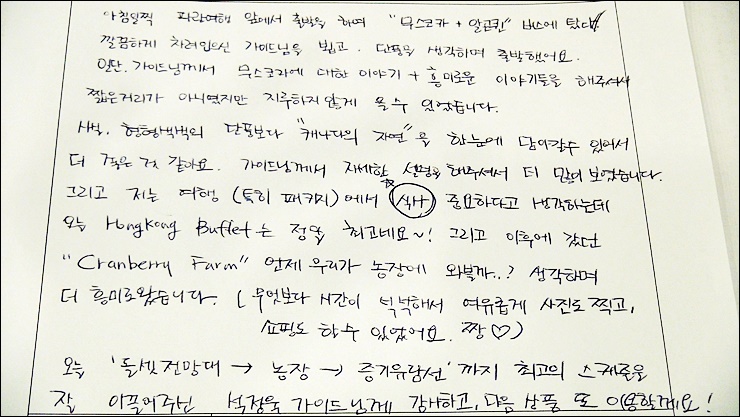 아침일찍 파란여행 앞에서 출발을 하며 "무스코카 + 알곤퀸" 버스에 탔다!
깔끔하게 차려입으신 가이드님을 뵙고. 단풍을 생각하며 출발했어요.
일단, 가이드님께서 무스코카에 대한 이야기 + 흥미로운 이야기들을 해주셔서
짧은거리가 아니였지만 지루하지 않게 올 수 있었습니다.
사실, 형형색색의 단풍보다 "캐나다의 자연"을 한눈에 담아갈수 있어서
더 좋은 것 같아요. 가이드님께서 자세한 설명을 해주셔서 더 많이 보였습니다.
그리고 저는 여행 (특히 패키지)에서 식사 중요하다고 생각하는데
오늘 HongKong Buffet는 정말 최고네요~! 그리고 이후에 갔던
"Cranberry Farm" 언제 우리가 농장에 와볼까..? 생각하며
더 흥미로웠습니다. (무엇보다 시간이 넉넉해서 여유롭게 사진도 찍고,
쇼핑도 할수 있었어요. 짱♡)
오늘 '돌셋전망대 → 농장 → 증기유람선'까지 최고의 스케줄을
잘 이끌어주신 석정욱 가이드님께 감사하고, 다음 상품 또 이용할게요!